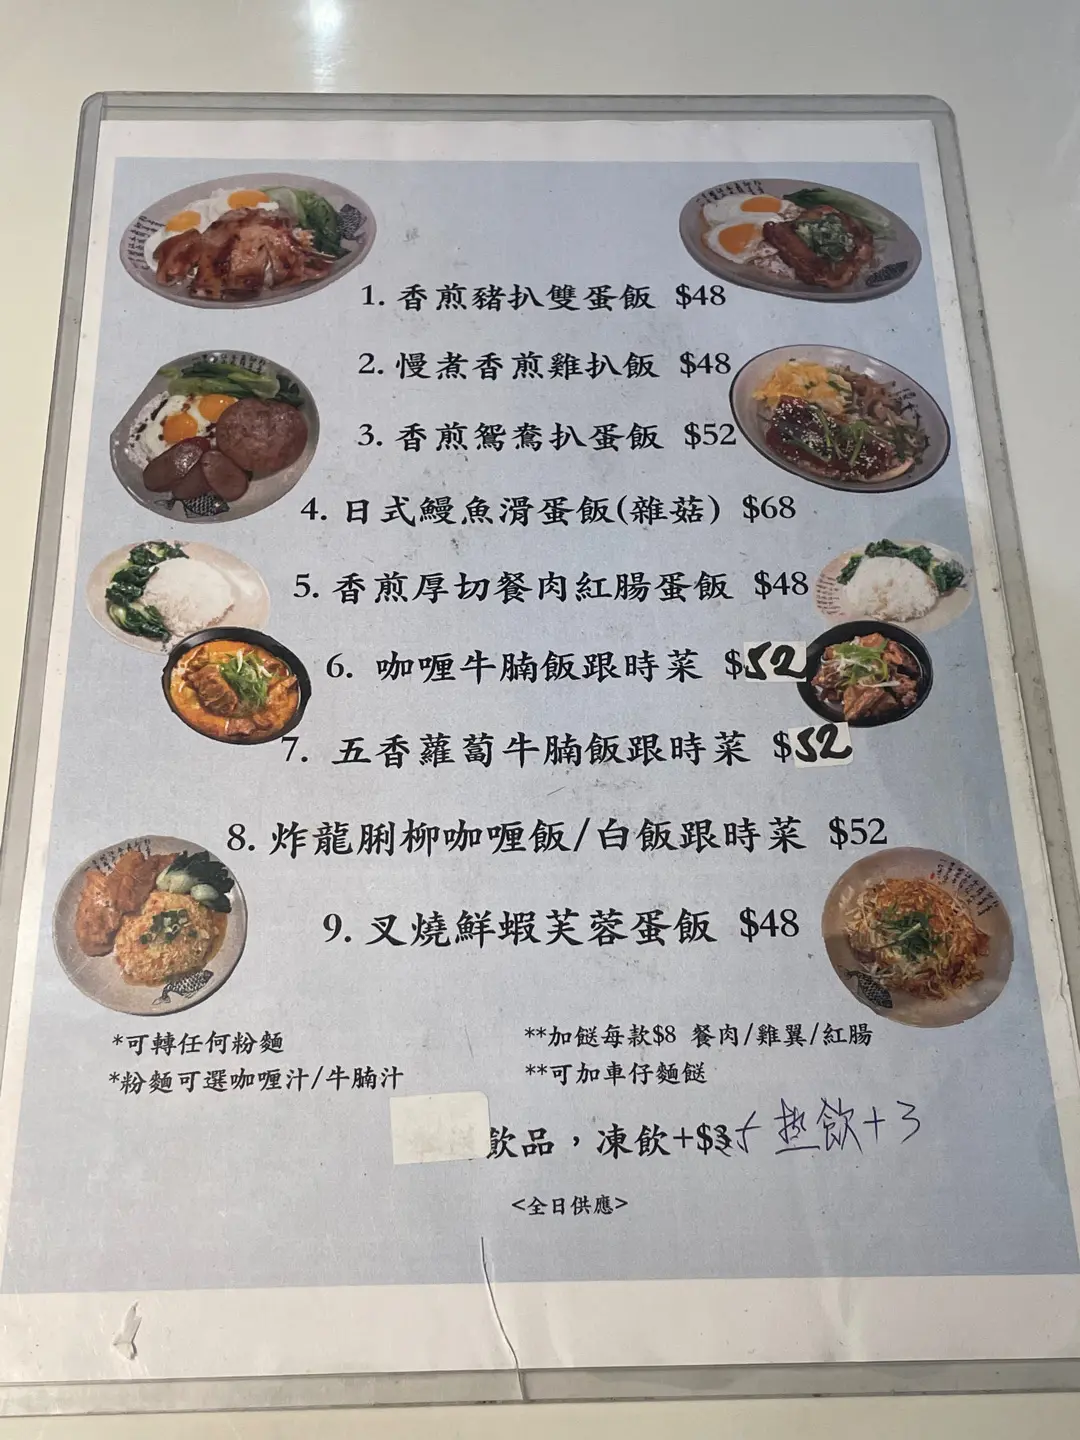 1. 香煎豬扒雙蛋飯 $48
2. 慢煮香煎雞扒飯 $48
3. 香煎鴛鴦扒蛋飯 $52
4. 日式鰻魚滑蛋飯(雜菇) $68
5. 香煎厚切餐肉紅腸蛋飯 $48
6. 咖喱牛腩飯跟時菜 $52
7. 五香蘿蔔牛腩飯跟時菜 $52
8. 炸龍脷柳咖喱飯/白飯跟時菜 $52
9. 叉燒鮮蝦芙蓉蛋飯 $48
*可轉任何粉麵
*粉麵可選咖喱汁/牛腩汁
**加餸每款$8 餐肉/雞翼/紅腸
**可加車仔麵餸
飲品，凍飲+$ 熱飲+3
<全日供應>